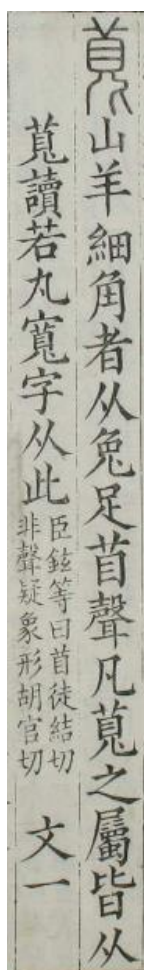 萈山羊細角者从兔足苜聲凡萈之屬皆从
萈讀若丸寬字从此
臣鉉等曰苜徒結切
非聲疑象形胡官切
文一